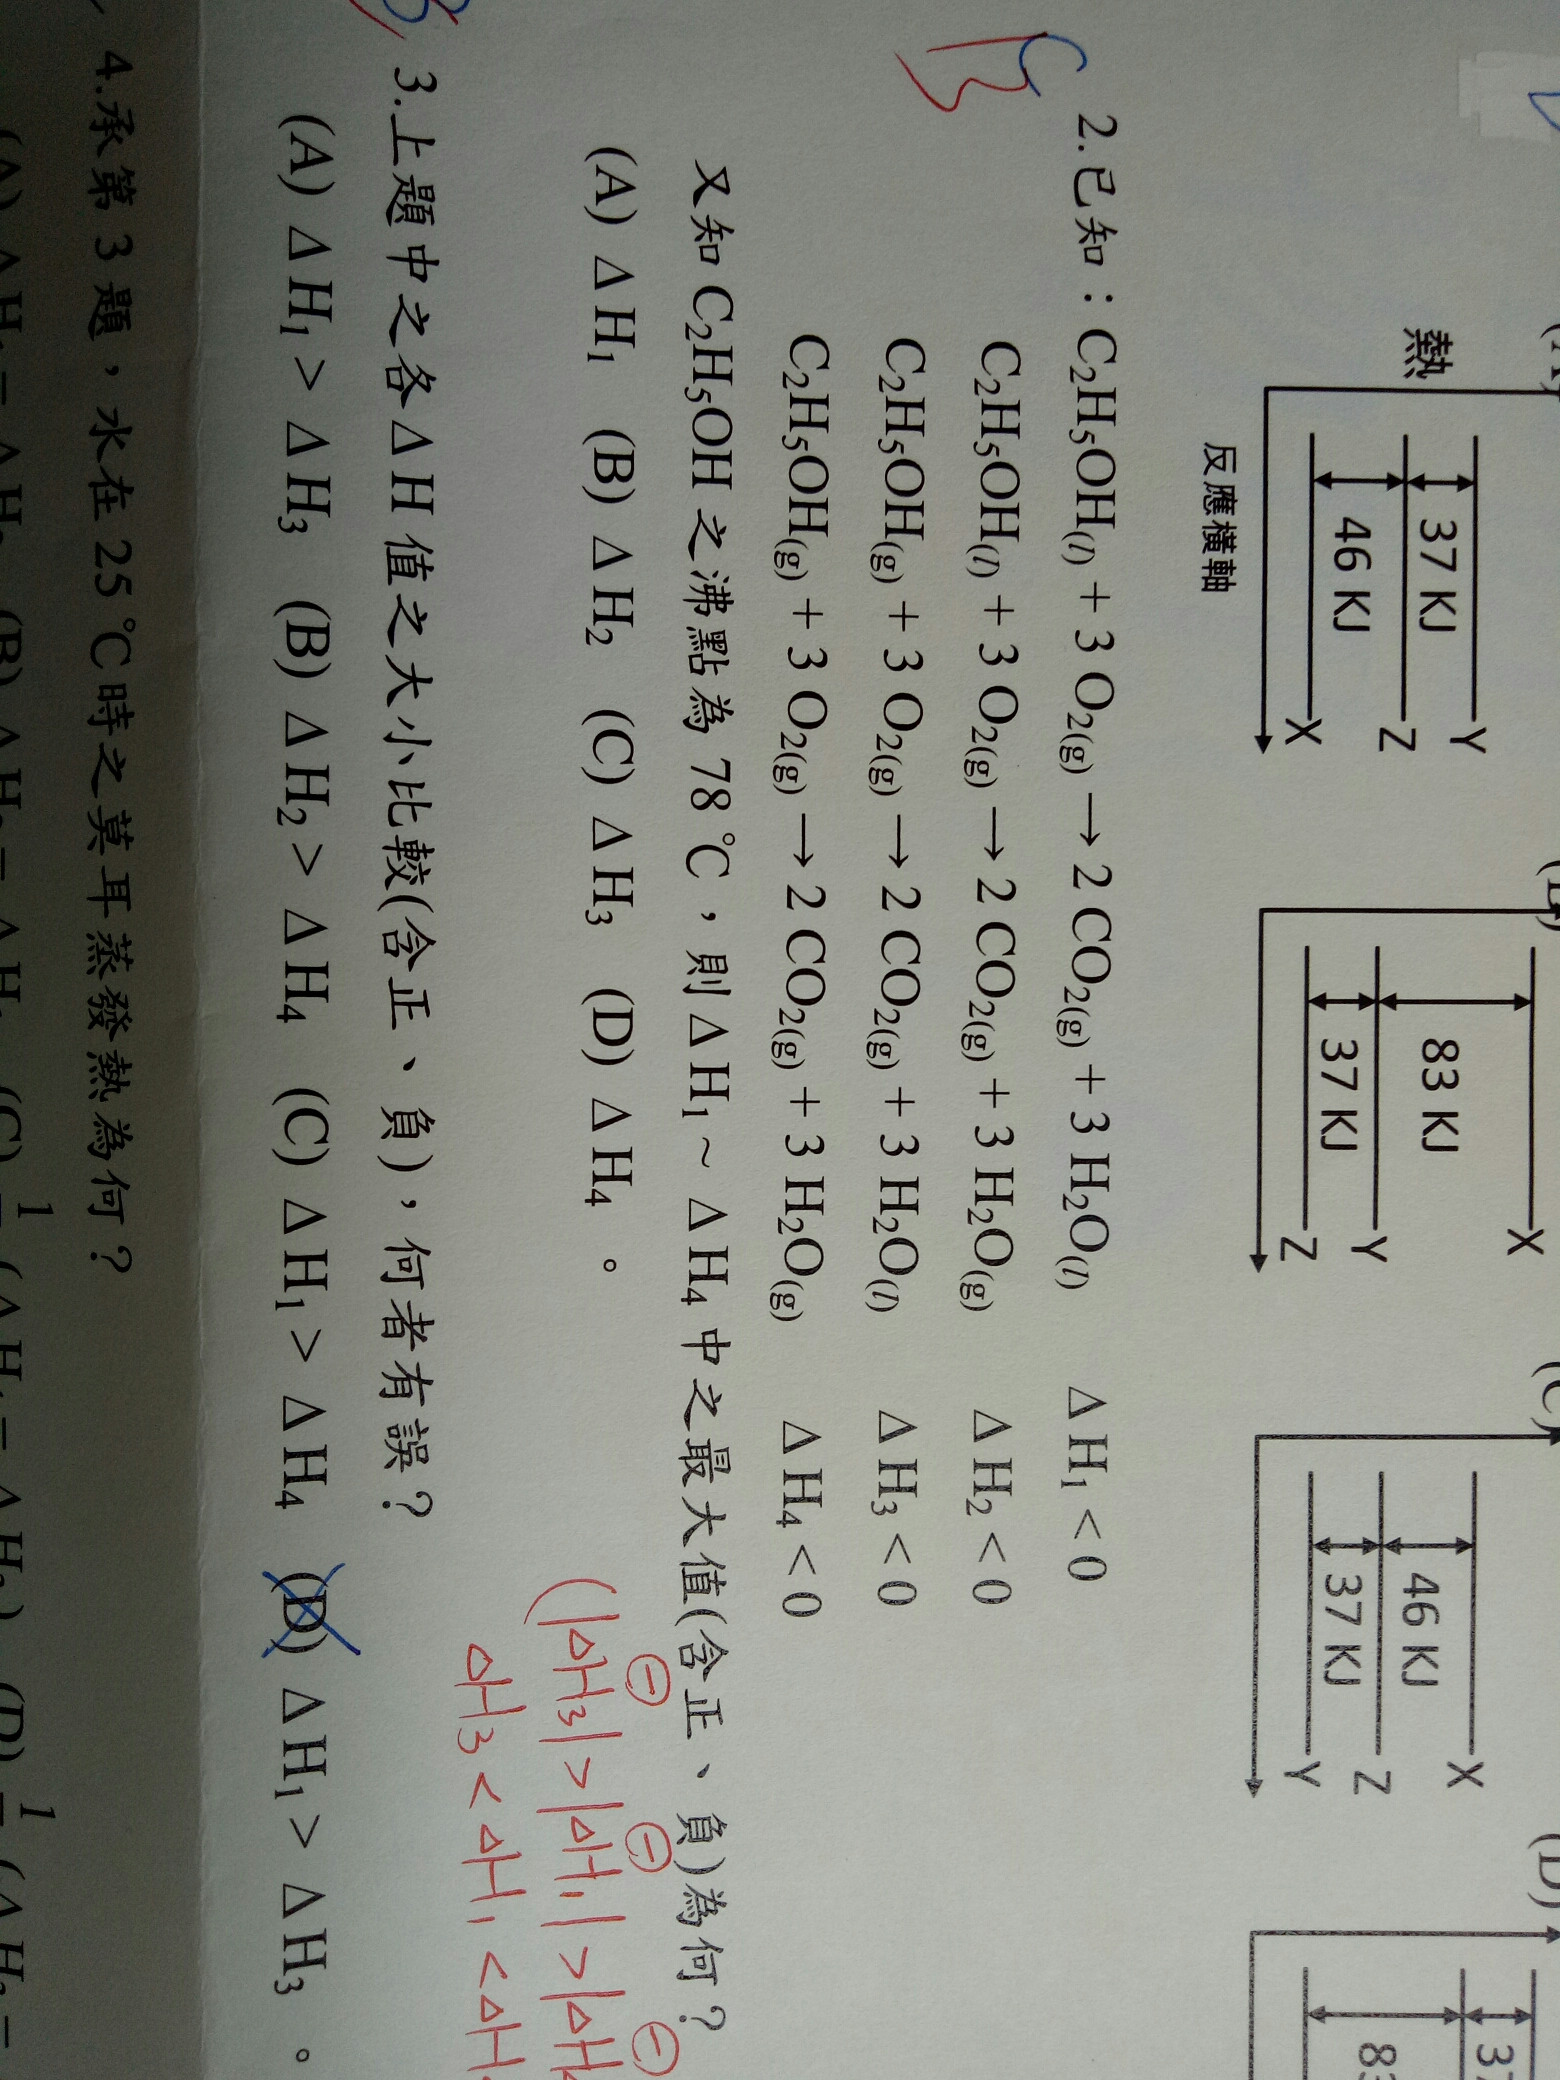 熱
37 KJ
46 KJ
Y
Z
X
反應橫軸
83 KJ
37 KJ
X
Y
Z
46 KJ
37 KJ
X
Z
Y
2.已知：C₂H₅OH(l) + 3 O₂(g) → 2 CO₂(g) + 3 H₂O(l) ΔH₁ < 0
C₂H₅OH(l) + 3 O₂(g) → 2 CO₂(g) + 3 H₂O(g) ΔH₂ < 0
C₂H₅OH(g) + 3 O₂(g) → 2 CO₂(g) + 3 H₂O(l) ΔH₃ < 0
C₂H₅OH(g) + 3 O₂(g) → 2 CO₂(g) + 3 H₂O(g) ΔH₄ < 0
又知 C₂H₅OH 之沸點為 78 ℃，則 ΔH₁ ~ ΔH₄ 中之最大值(含正、負)為何？
(A) ΔH₁ (B) ΔH₂ (C) ΔH₃ (D) ΔH₄ 。
(|ΔH₃| > |ΔH₁| > |ΔH
ΔH₃ < ΔH₁ < ΔH
3.上題中之各 ΔH 值之大小比較(含正、負)，何者有誤？
(A) ΔH₁ > ΔH₃ (B) ΔH₂ > ΔH₄ (C) ΔH₁ > ΔH₄ (D) ΔH₁ > ΔH₃ 。
4.承第 3 題，水在 25 ℃時之莫耳蒸發熱為何？